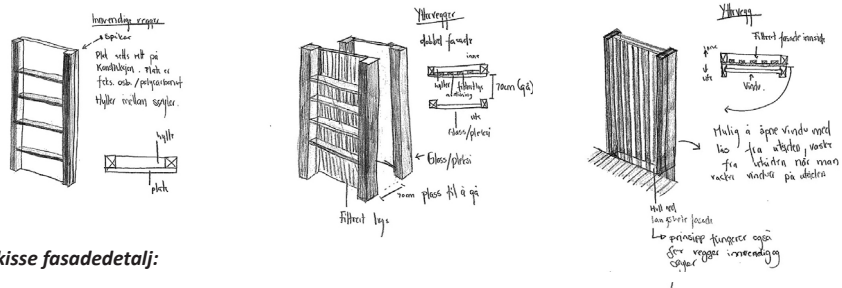 Innvendig vegger
spiker
Plate setts rett på
konstruksjon. Plate er
f.eks. osb / polycarbonat
Hyller mellom søyler.
hyller
plate
Yttervegger
dobbel fasade
inne
hyller
filtrert lys
70cm (gå)
ute
Glass/pleksi
Glass/pleksi
70cm plass til å gå
Filtrert lys
Yttervegg
Filtrert fasade innside
inne
ute
Vindu.
Mulig å åpne vindu med
lås fra utsiden, vaske
fra utsiden når man
vasker vinduer på utsiden
Hull ved
fasade
prinsipp fungerer også
for vegger innvendig og
søyler
kisse fasadedetalj: